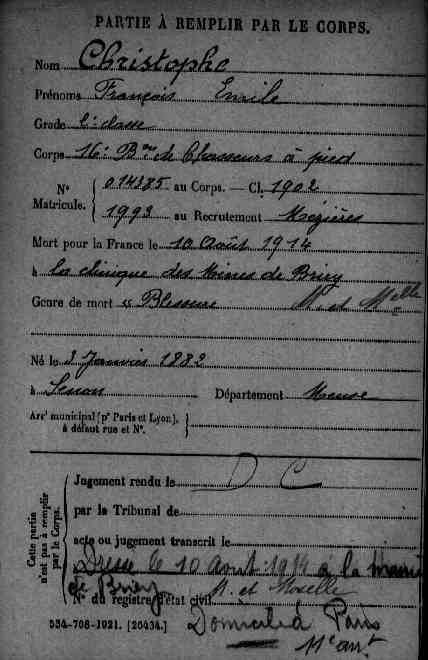 PARTIE À REMPLIR PAR LE CORPS.
Nom Christophe
Prénoms François Emile
Grade 2e classe
Corps 16e Bon de Chasseurs à pied
No Matricule. 014385 au Corps. — Cl. 1902
1993 au Recrutement Mézières
Mort pour la France le 10 Août 1914
à la clinique des Mines de Briey
Genre de mort Blessure M. et Melle
Né le 3 Janvier 1882
à Senon Département Meuse
Arrt municipal (pr Paris et Lyon),
à défaut rue et No.
Cette partie n'est pas à remplir par le Corps.
Jugement rendu le D C
par le Tribunal de
acte ou jugement transcrit le
Dressé le 10 Août 1914 à la Mairie
de Briey M. et Moselle
No du registre d'état civil
Domicilié à Paris
534-708-1921. [26434.]
11e arrt